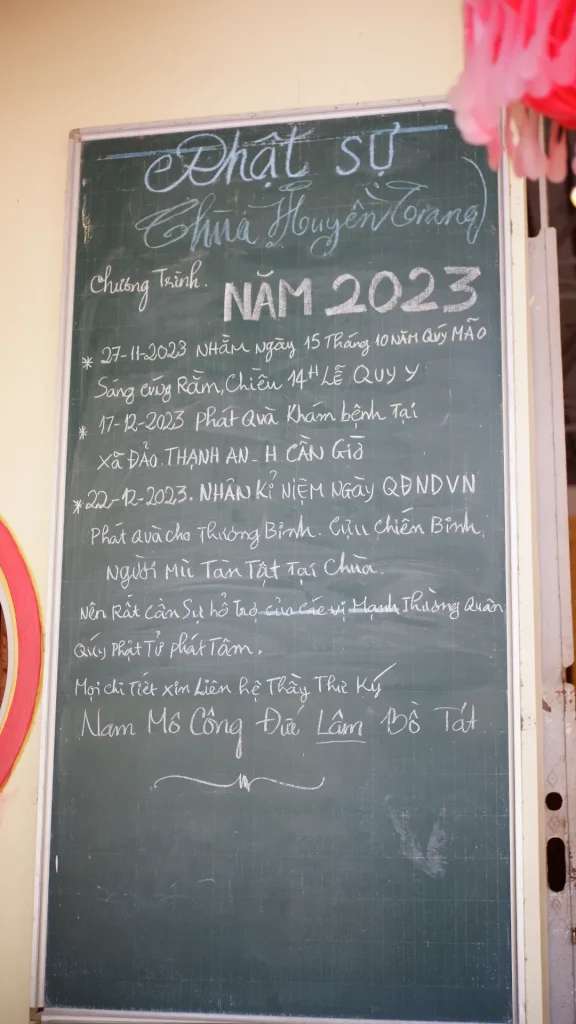 Phật sự
Chùa Huyền Trang
Chương Trình.
NĂM 2023
* 27-11-2023 NHẰM Ngày 15 Tháng 10 NĂM QUÝ MÃO
Sáng cúng Rằm, Chiều 14H LỄ QUY Y
* 17-12-2023 Phát Quà Khám bệnh Tại
xã ĐẢO THẠNH AN - H CẦN GIỜ
* 22-12-2023. NHÂN KỈ NIỆM Ngày QĐNDVN
Phát quà cho Thương Binh. Cựu Chiến Binh,
Người Mù Tàn Tật Tại Chùa.
Nên Rất Cần Sự hổ Trợ của các vị Mạnh Thường Quân
Qúy Phật Tử phát Tâm.
Mọi chi Tiết xin Liên hệ Thầy Thư Ký
Nam Mô Công Đức Lâm Bồ Tát